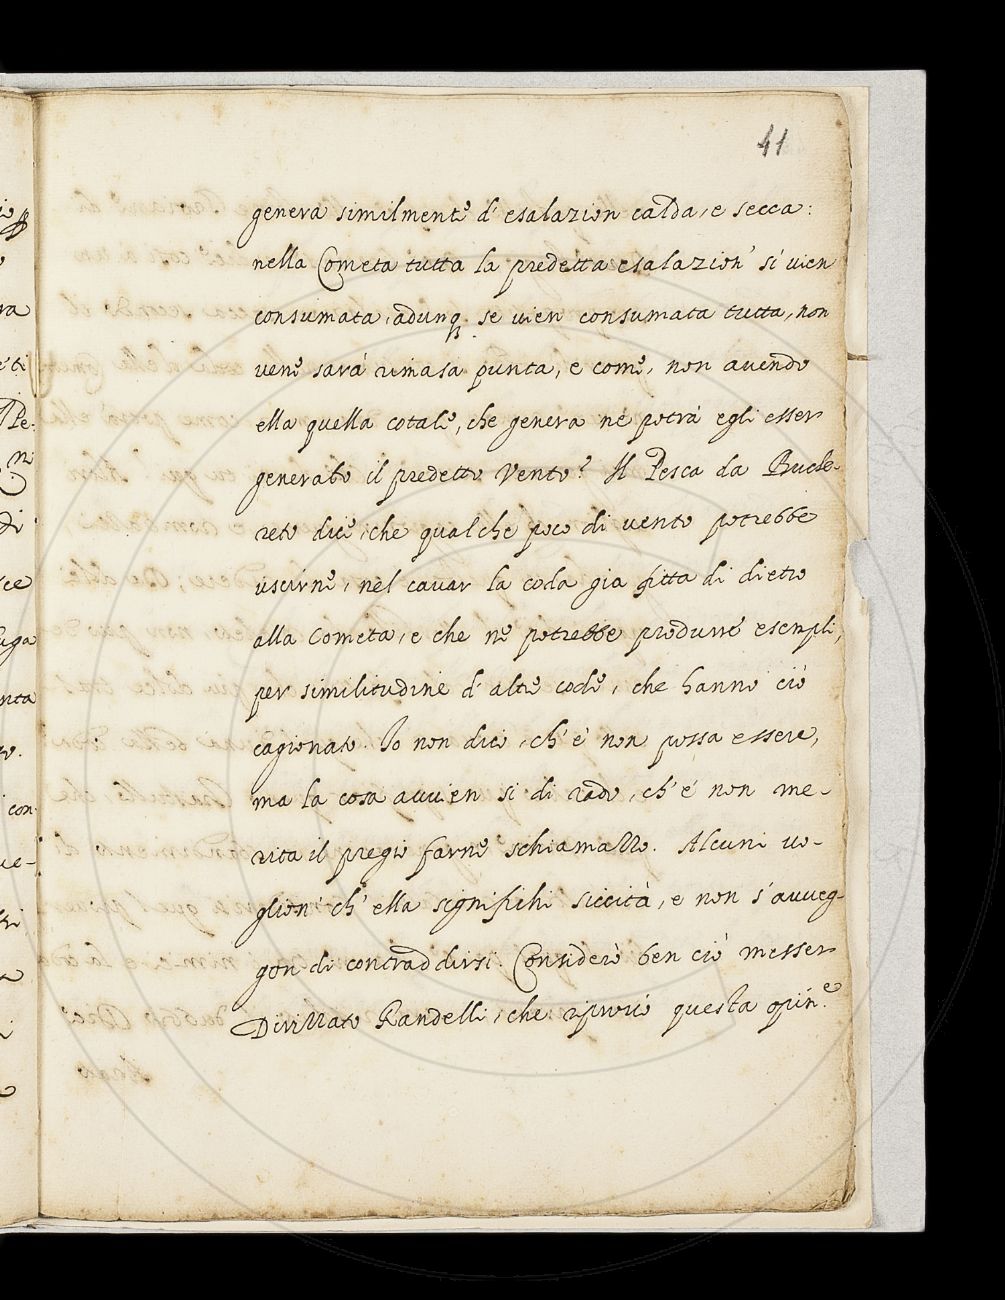 41
genera similmente d' esalazion calda, e secca:
nella Cometa tutta la predetta esalazion' si vien
consumata, adunq se vien consumata tutta, non
vene sará rimasa punta, e come, non avendo
ella quella cotale, che genera ne potrà egli esser
generato il predetto Vento? Il Pesca da Bucle-
reto dice, che qualche poco di vento potrebbe
uscirne, nel cavar la coda gia fitta di dietro
alla Cometa, e che ne potrebbe produrre esempli,
per similitudine d' altre code, che hanno ciò
cagionato. Io non dico, ch' e' non possa essere,
ma la cosa avvien si di rado, ch' e' non me-
rita il pregio farne schiamazzo. Alcuni vo-
glion' ch' ella significhi siccità, e non s' avveg-
gon di contraddirsi. Considerò ben ciò messer
Dirizzato Randelli, che riprovò questa opin.e